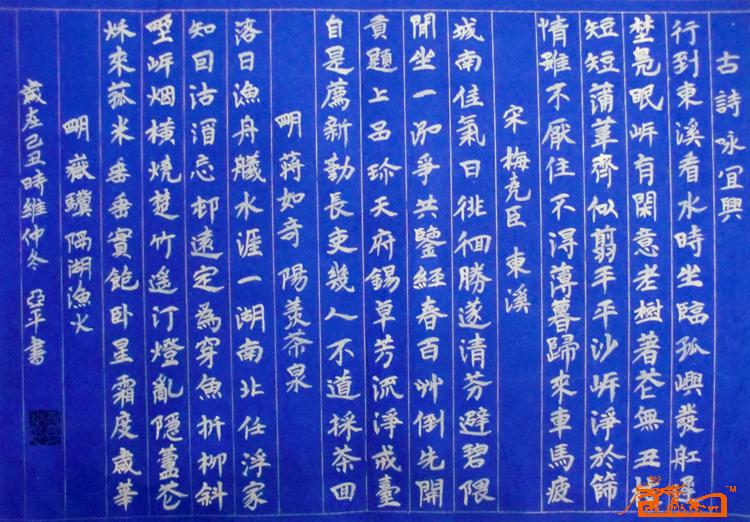 古詩咏宜興
行到東溪看水時坐臨孤嶼發舡遲
埜鳧眠岸有閑意老樹著花無丑
短短蒲茸齊似翦平平沙岸淨於篩
情雖不厭住不得薄暮歸來車馬疲
宋 梅堯臣 東溪
城南佳氣日徘徊勝遂清芬避碧隈
閒坐一泓爭共鑒經春百艸倒先開
貢題上品珍天府錫草芳流淨戒臺
自是薦新勤長吏幾人不道採茶回
明 蔣如奇 陽羨茶泉
落日漁舟艤水涯一湖南北任浮家
知回沽酒忘邨遠定為穿魚折柳斜
野岸烟橫燒楚竹遙汀燈亂隱蘆花
秌來菰米垂垂實飽卧星霜度歲華
明 嶽驥 隔湖漁火
歲在己丑時維仲冬 亞平書